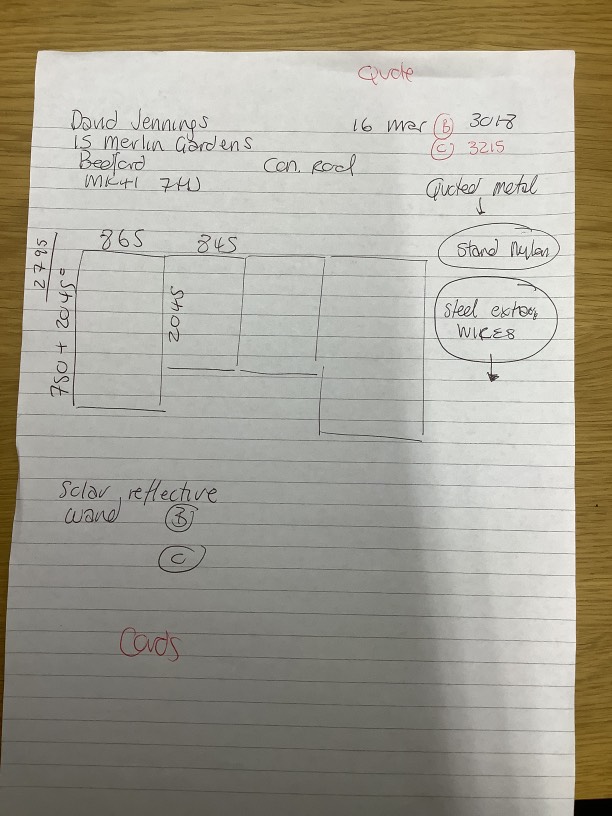 Quote
David Jennings
16 mar (B) 3018
15 Merlin Gardens
(C) 3215
Bedford
Con. Roof
MK41 7HJ
Quoted metal
Stand Nylon
865
845
2795
750 + 2045
2045
Steel extra
WIRES
Solar reflective
wand (B)
(C)
Cards